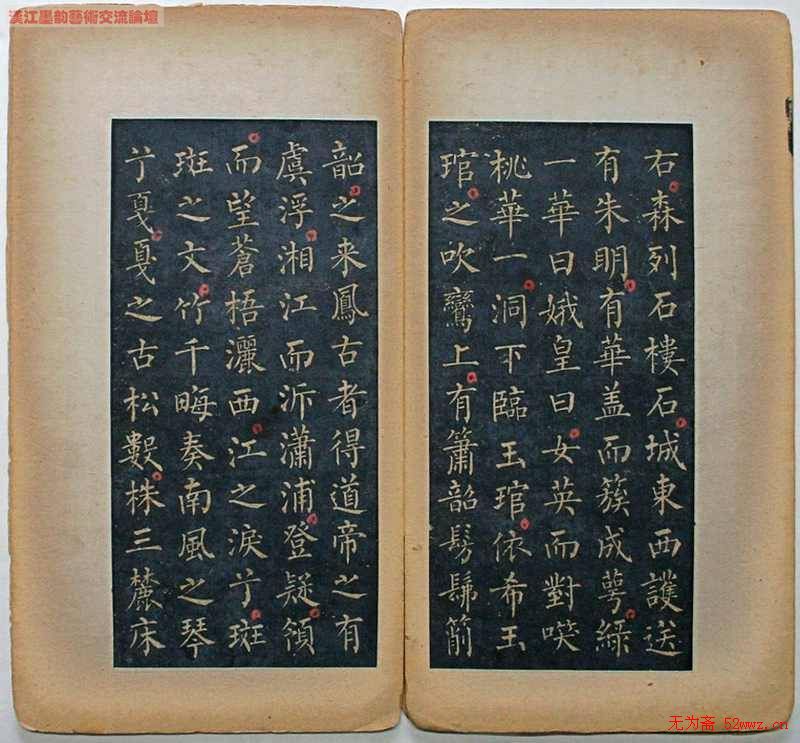 漢江墨韵藝術交流論壇
右森列石樓石城東西護送
有朱明有華盖而簇成萼綠
一華曰娥皇曰女英而對㗛
桃華一洞下臨玉琯依希玉
琯之吹鸞上有簫韶髣髴箾
韶之来鳳古者得道帝之有
虞浮湘江而泝瀟浦登疑領
而望蒼梧灑西江之淚兮斑
斑之文竹千畮奏南風之琴
兮戛戛之古松數株三麓床
无为斋 52wwz.cn